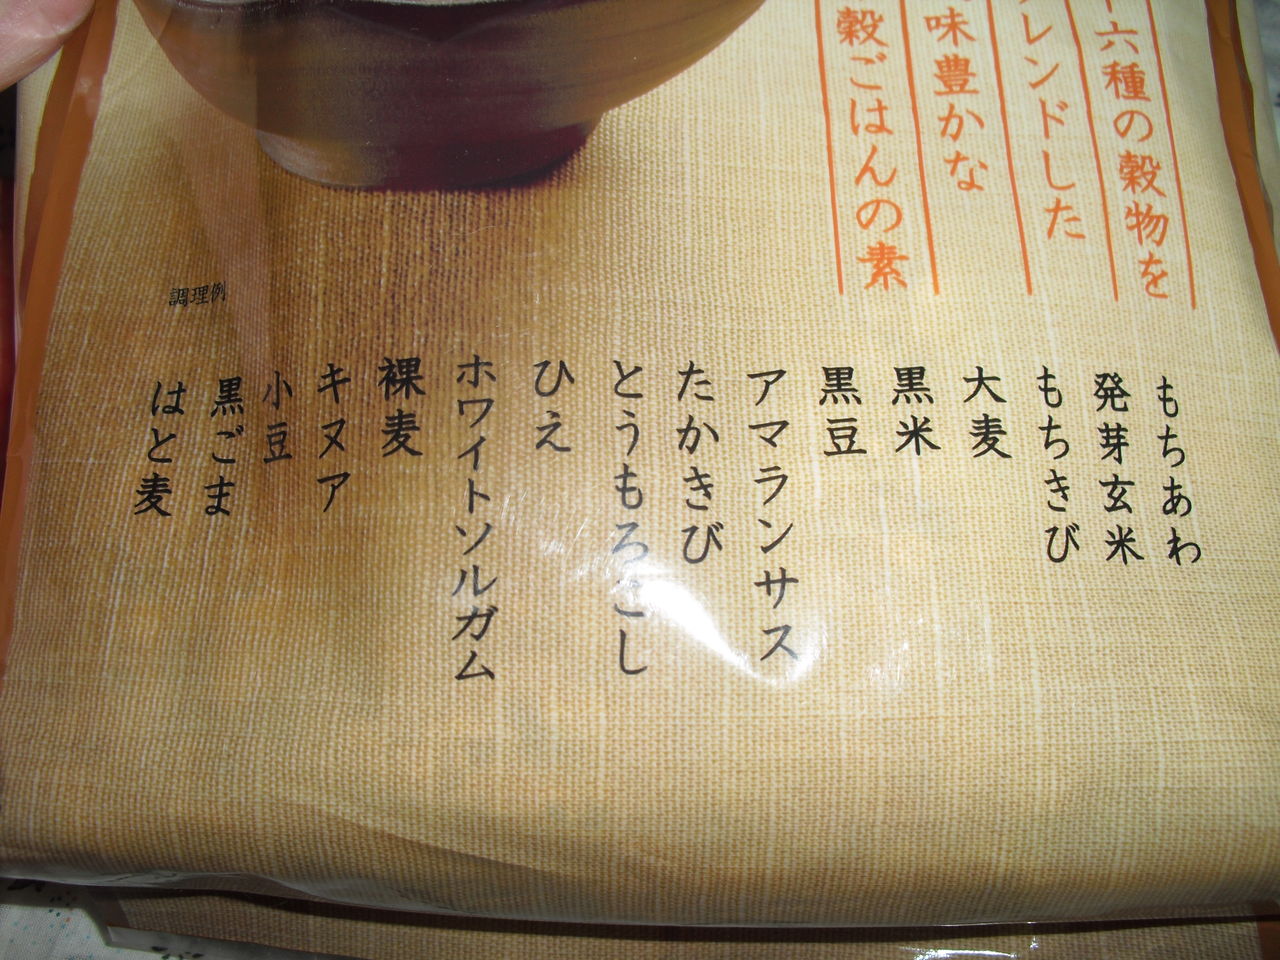 六種の穀物を
レンドした
味豊かな
穀ごはんの素
もちあわ
発芽玄米
もちきび
大麦
黒米
黒豆
アマランサス
たかきび
とうもろこし
ひえ
ホワイトソルガム
裸麦
キヌア
小豆
黒ごま
はと麦
調理例